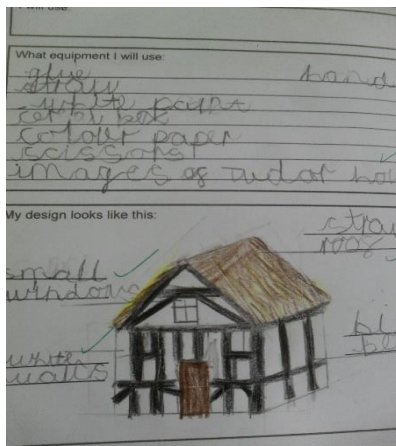 I will use:
What equipment I will use:
glue
straw
hand
white paint
colour paper
scissors
images of Tudor hou
My design looks like this:
straw
roof
small
windows
white
walls
bl